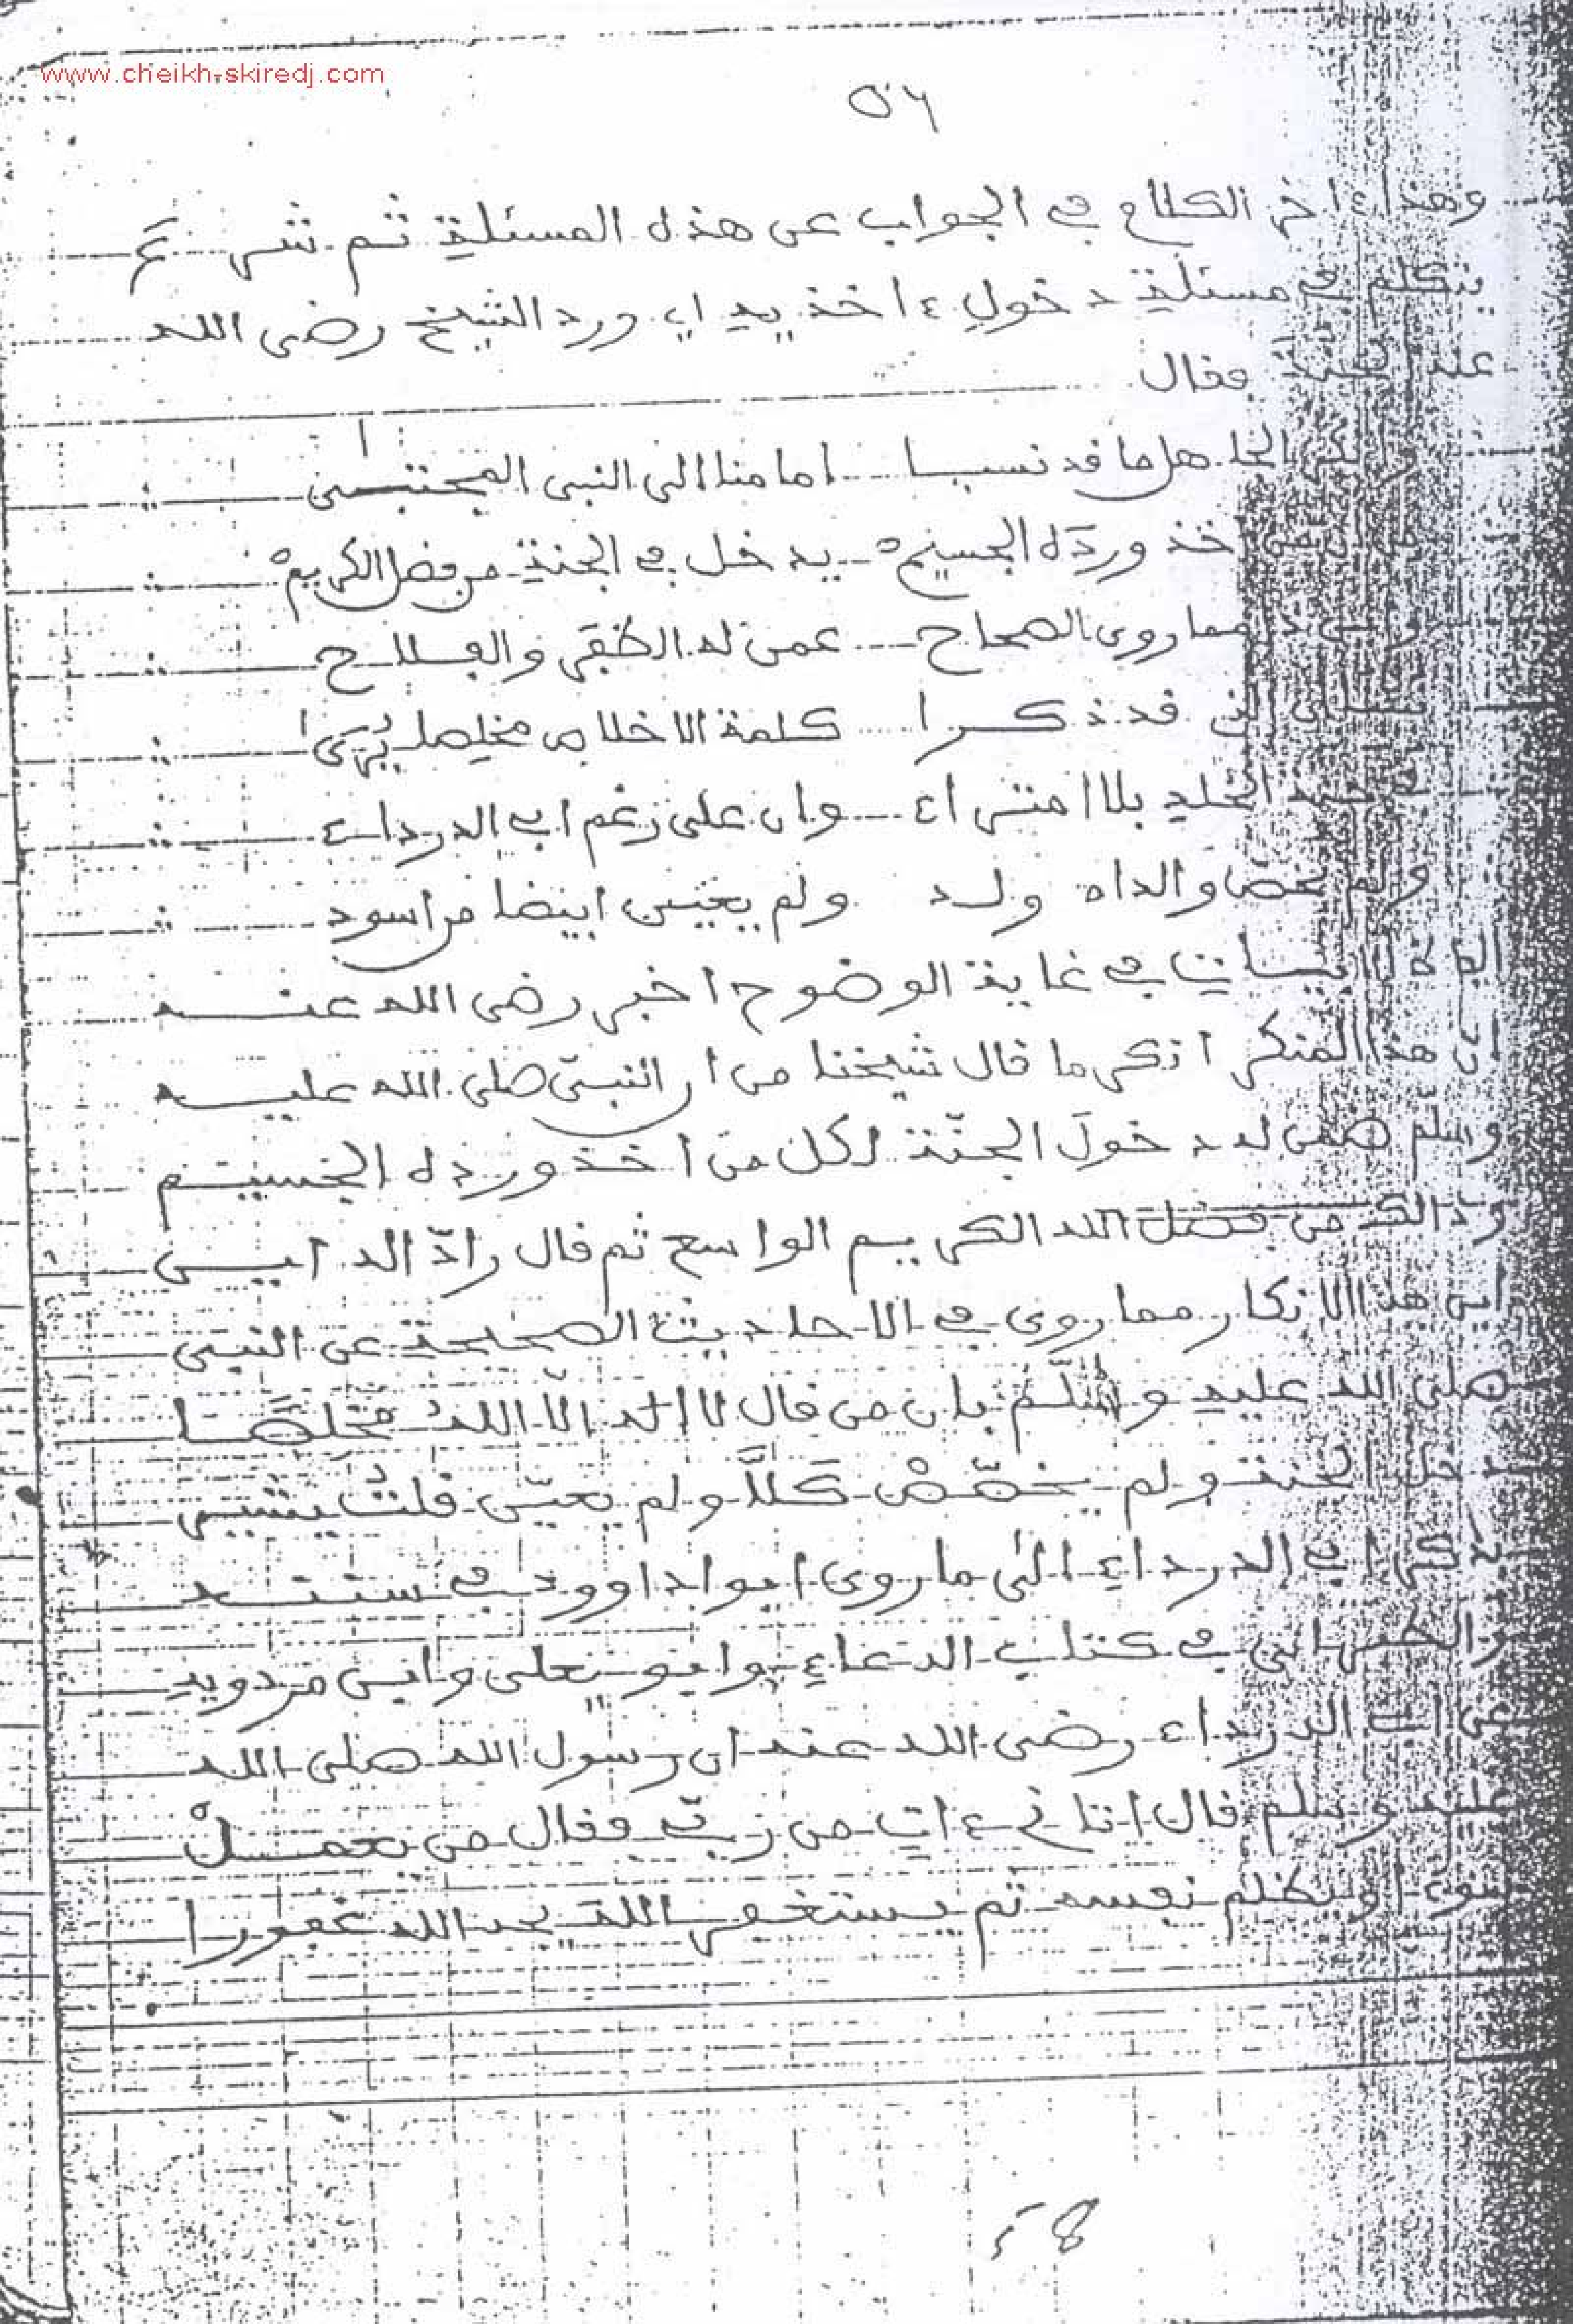 www.cheikh-skiredj.com
٥٦
وهذا ءاخر الكلام في الجواب عن هذه المسئلة ثم شرع
يتكلم في مسئلة دخول ءاخذيه اي ورد الشيخ رضى الله
عنه الجنة فقال
الجاهل ما قد نسبا امامنا الى النبي المجتبى
من اخذ ورده الجسيم يدخل في الجنة من فضل الكريم
مما روى الصحاح عمن له الظفر والفلاح
قد ذكرا كلمة الاخلاص مخلصا يرى
الخلد بلا امتراء وان على رغم ابي الدرداء
ولم يخص والداه ولد ولم يعين ابيضا من اسود
الابيات في غاية الوضوح اخبر رضى الله عنه
ان هذا المنكر انكر ما قال شيخنا من ان النبي صلى الله عليه
وسلم ضمن له دخول الجنة لكل من اخذ ورده الجسيم
وذالك من فضل الله الكريم الواسع ثم قال رادّا له اين
اين هذا الانكار مما روى في الاحاديث الصحيحة عن النبي
صلى الله عليه وسلّم بان من قال لا اله الّا الله مخلصا
دخل الجنة ولم يخصّصْ كلَّا ولم يعيّن قلتُ يشير
بذكر ابي الدرداء الى ما روى ابوا داوود في سننه
والطبراني في كتاب الدعاء وابو يعلى وابن مردويه
عن ابي الدرداء رضى الله عنه ان رسول الله صلى الله
عليه وسلم قال اتاني ءات من ربّي فقال من يعملْ
سوءا او يظلم نفسه ثم يستغفر الله يجد الله غفورا
٥٨